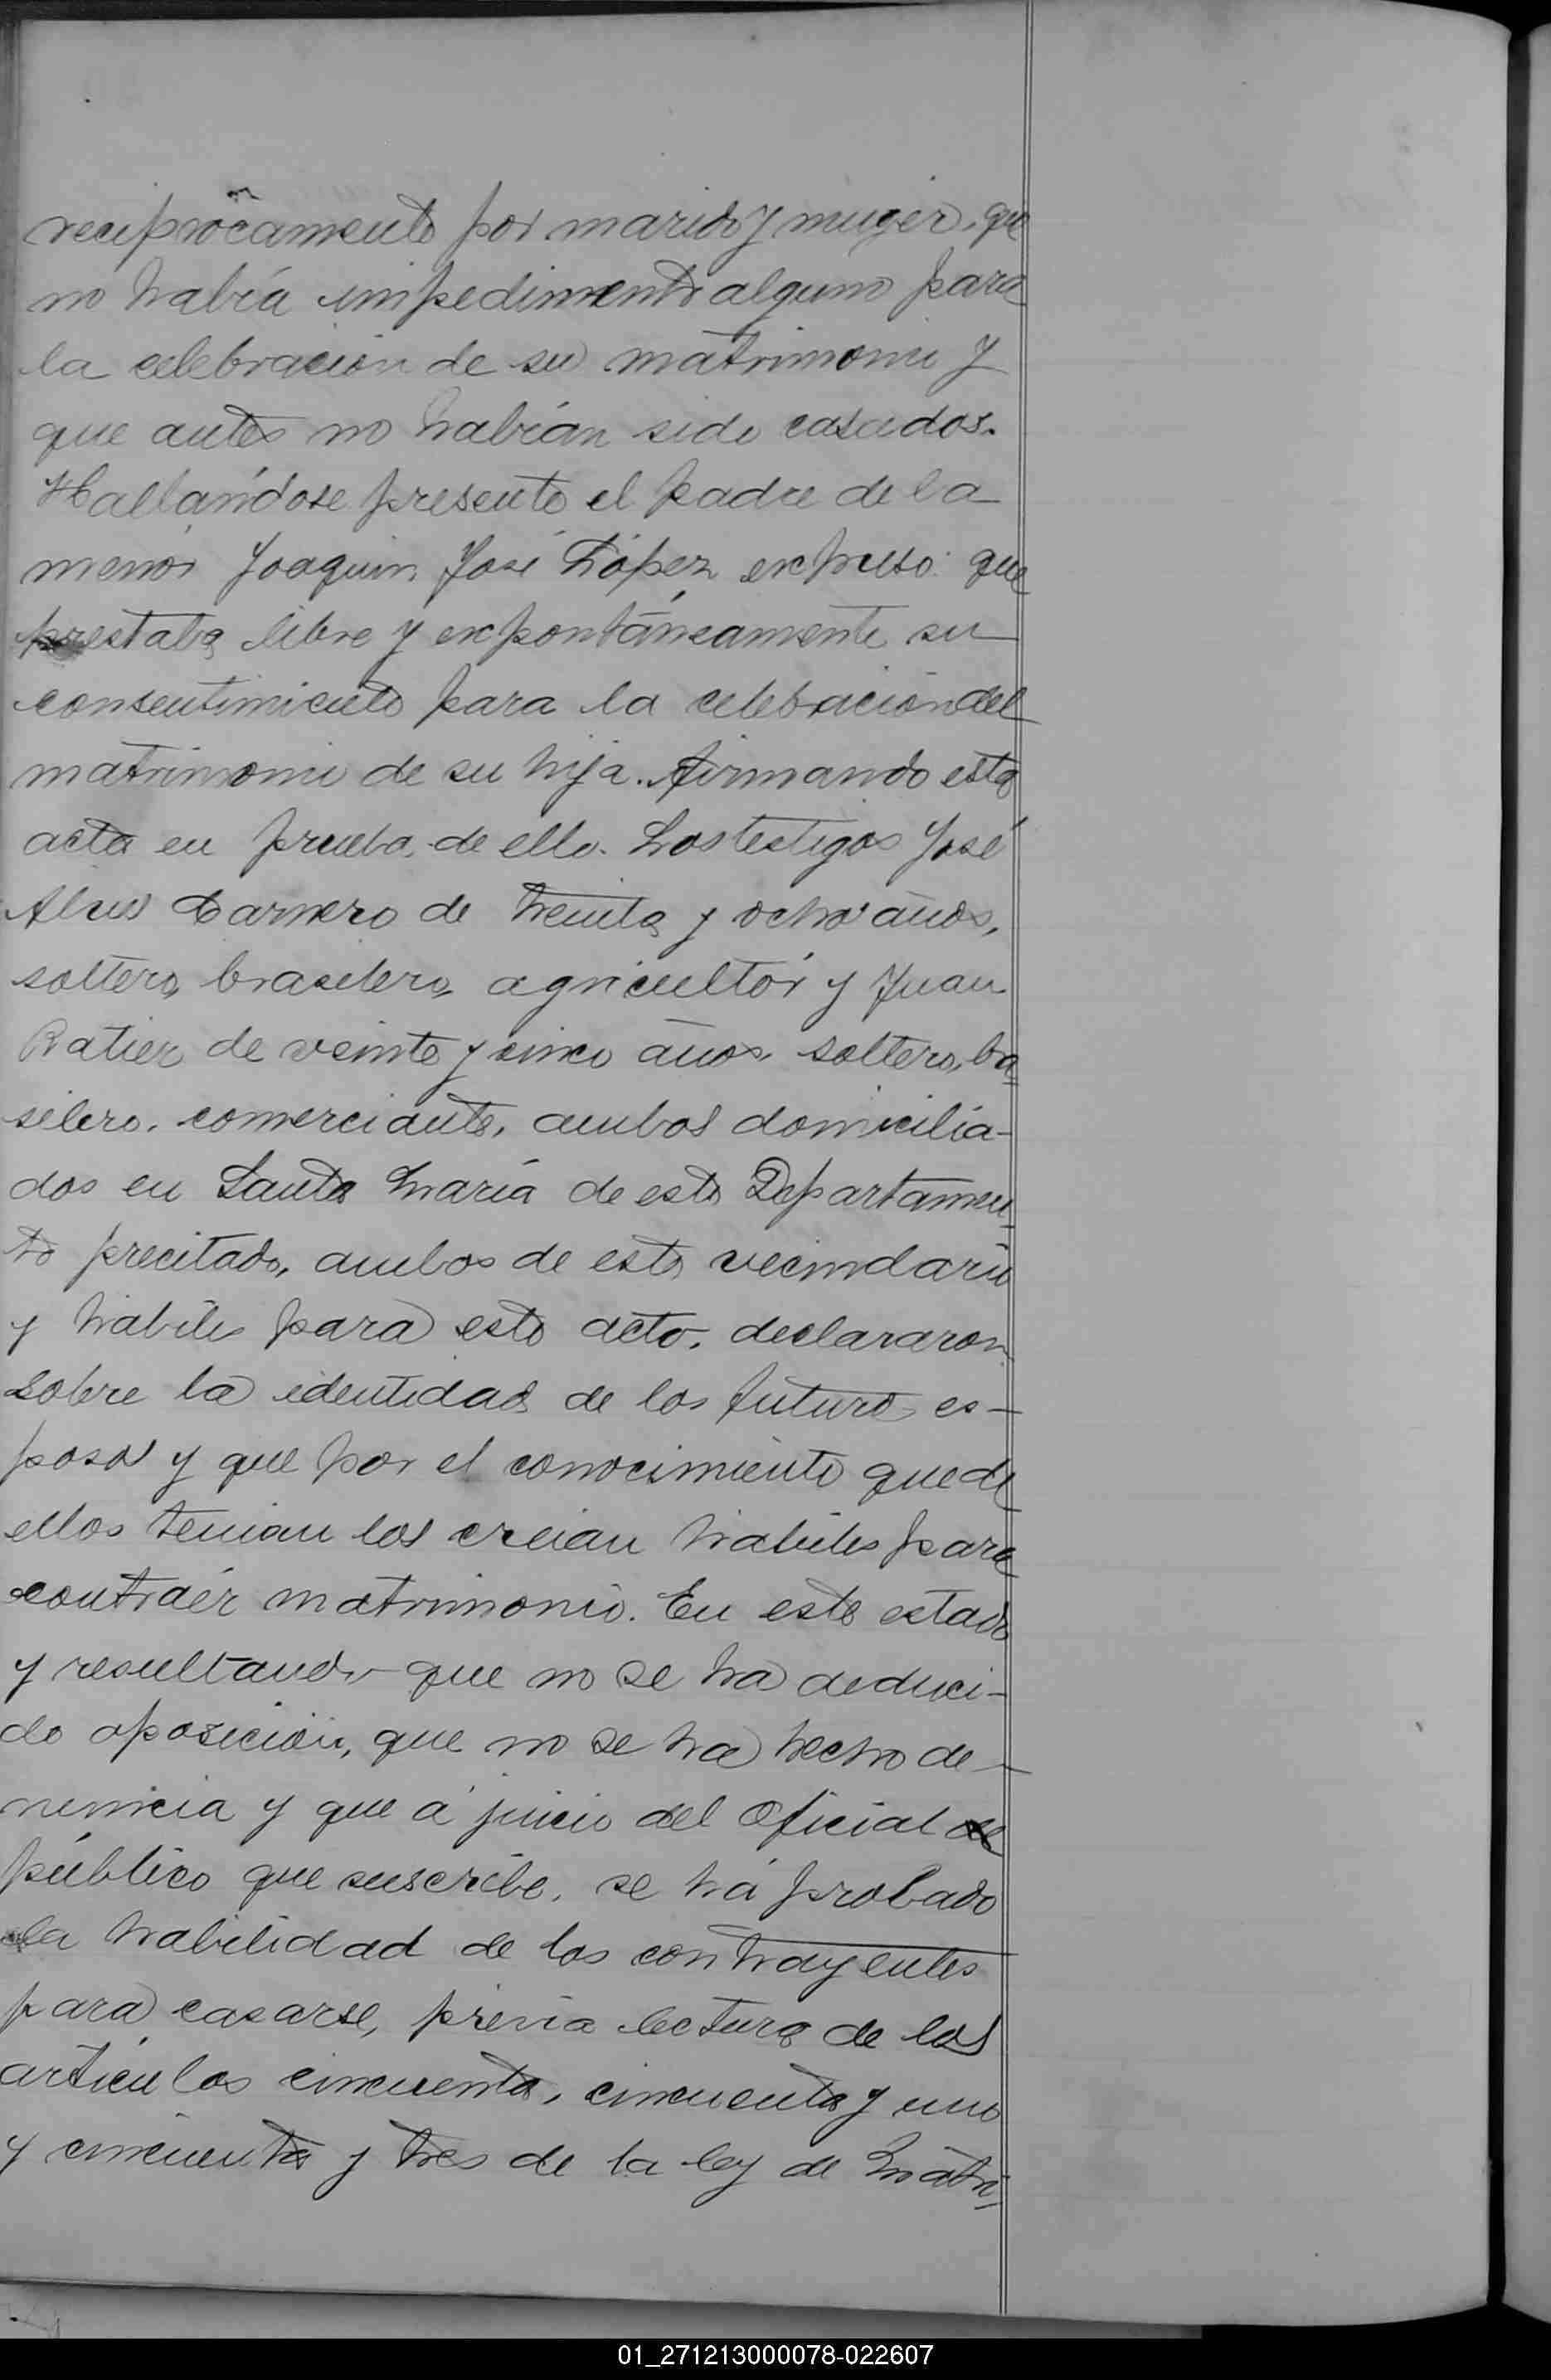 reciprocamente por marido y muger, que
no había impedimento alguno para
la celebracion de su matrimonio y
que antes no habían sido casados.
Hallandose presente el padre de la
menor Joaquin José López expreso: que
prestaba libre y expontáneamente su
consentimiento para la celebracion del
matrimonio de su hija. firmando esta
acta en prueba de ello. Los testigos José
Alves Carnero de treinta y ocho años,
soltero, brasilero, agricultor y Juan
Ratier de veinte y cinco años, soltero, bra
silero, comerciante, ambos domicilia-
dos en Santa María de este Departamen-
to precitado, ambos de este vecindario
y habiles para este acto, declararon
sobre la identidad de los futuros es-
posos y que por el conocimiento que de
ellos tenian los creian habiles para
contraér matrimonio. En este estado
y resultando que no se ha deduci-
do oposición, que no se ha hecho de-
nuncia y que á juicio del Oficial
público que suscribe, se há probado
la habilidad de los contrayentes
para casarse, previa lectura de los
articulos cincuenta, cincuenta y uno
y cincuenta y tres de la ley de Matri-
01_271213000078-022607